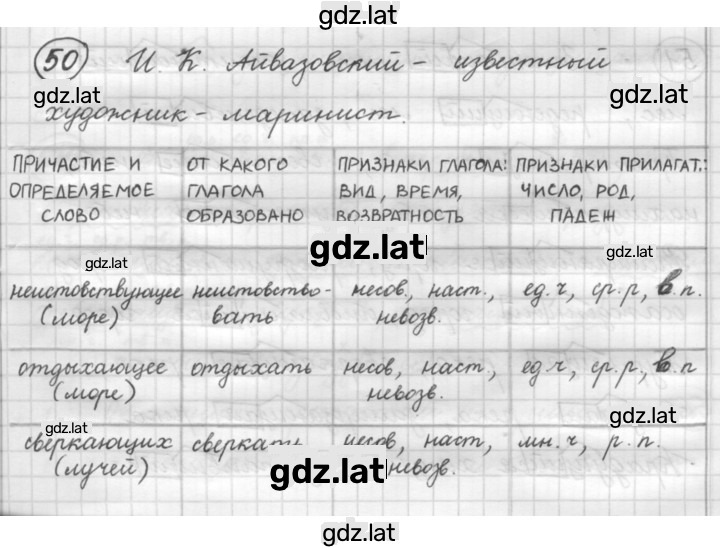 gdz.lat
50 И. К. Айвазовский – известный
gdz.lat gdz.lat
художник – маринист.
ПРИЧАСТИЕ И ОТ КАКОГО ПРИЗНАКИ ГЛАГОЛА: ПРИЗНАКИ ПРИЛАГАТ.:
ОПРЕДЕЛЯЕМОЕ ГЛАГОЛА ВИД, ВРЕМЯ, ЧИСЛО, РОД,
СЛОВО ОБРАЗОВАНО ВОЗВРАТНОСТЬ ПАДЕЖ
gdz.lat
gdz.lat
неистовствующее неистовство- несов., наст., ед.ч, ср.р, в.п.
(море) вать невозв.
отдыхающее отдыхать несов, наст., ед.ч, ср.р, в.п
(море) невозв.
gdz.lat gdz.lat
сверкающих сверкать несов, наст, мн.ч, р.п.
(лучей) gdz.lat невозв.
gdz.lat